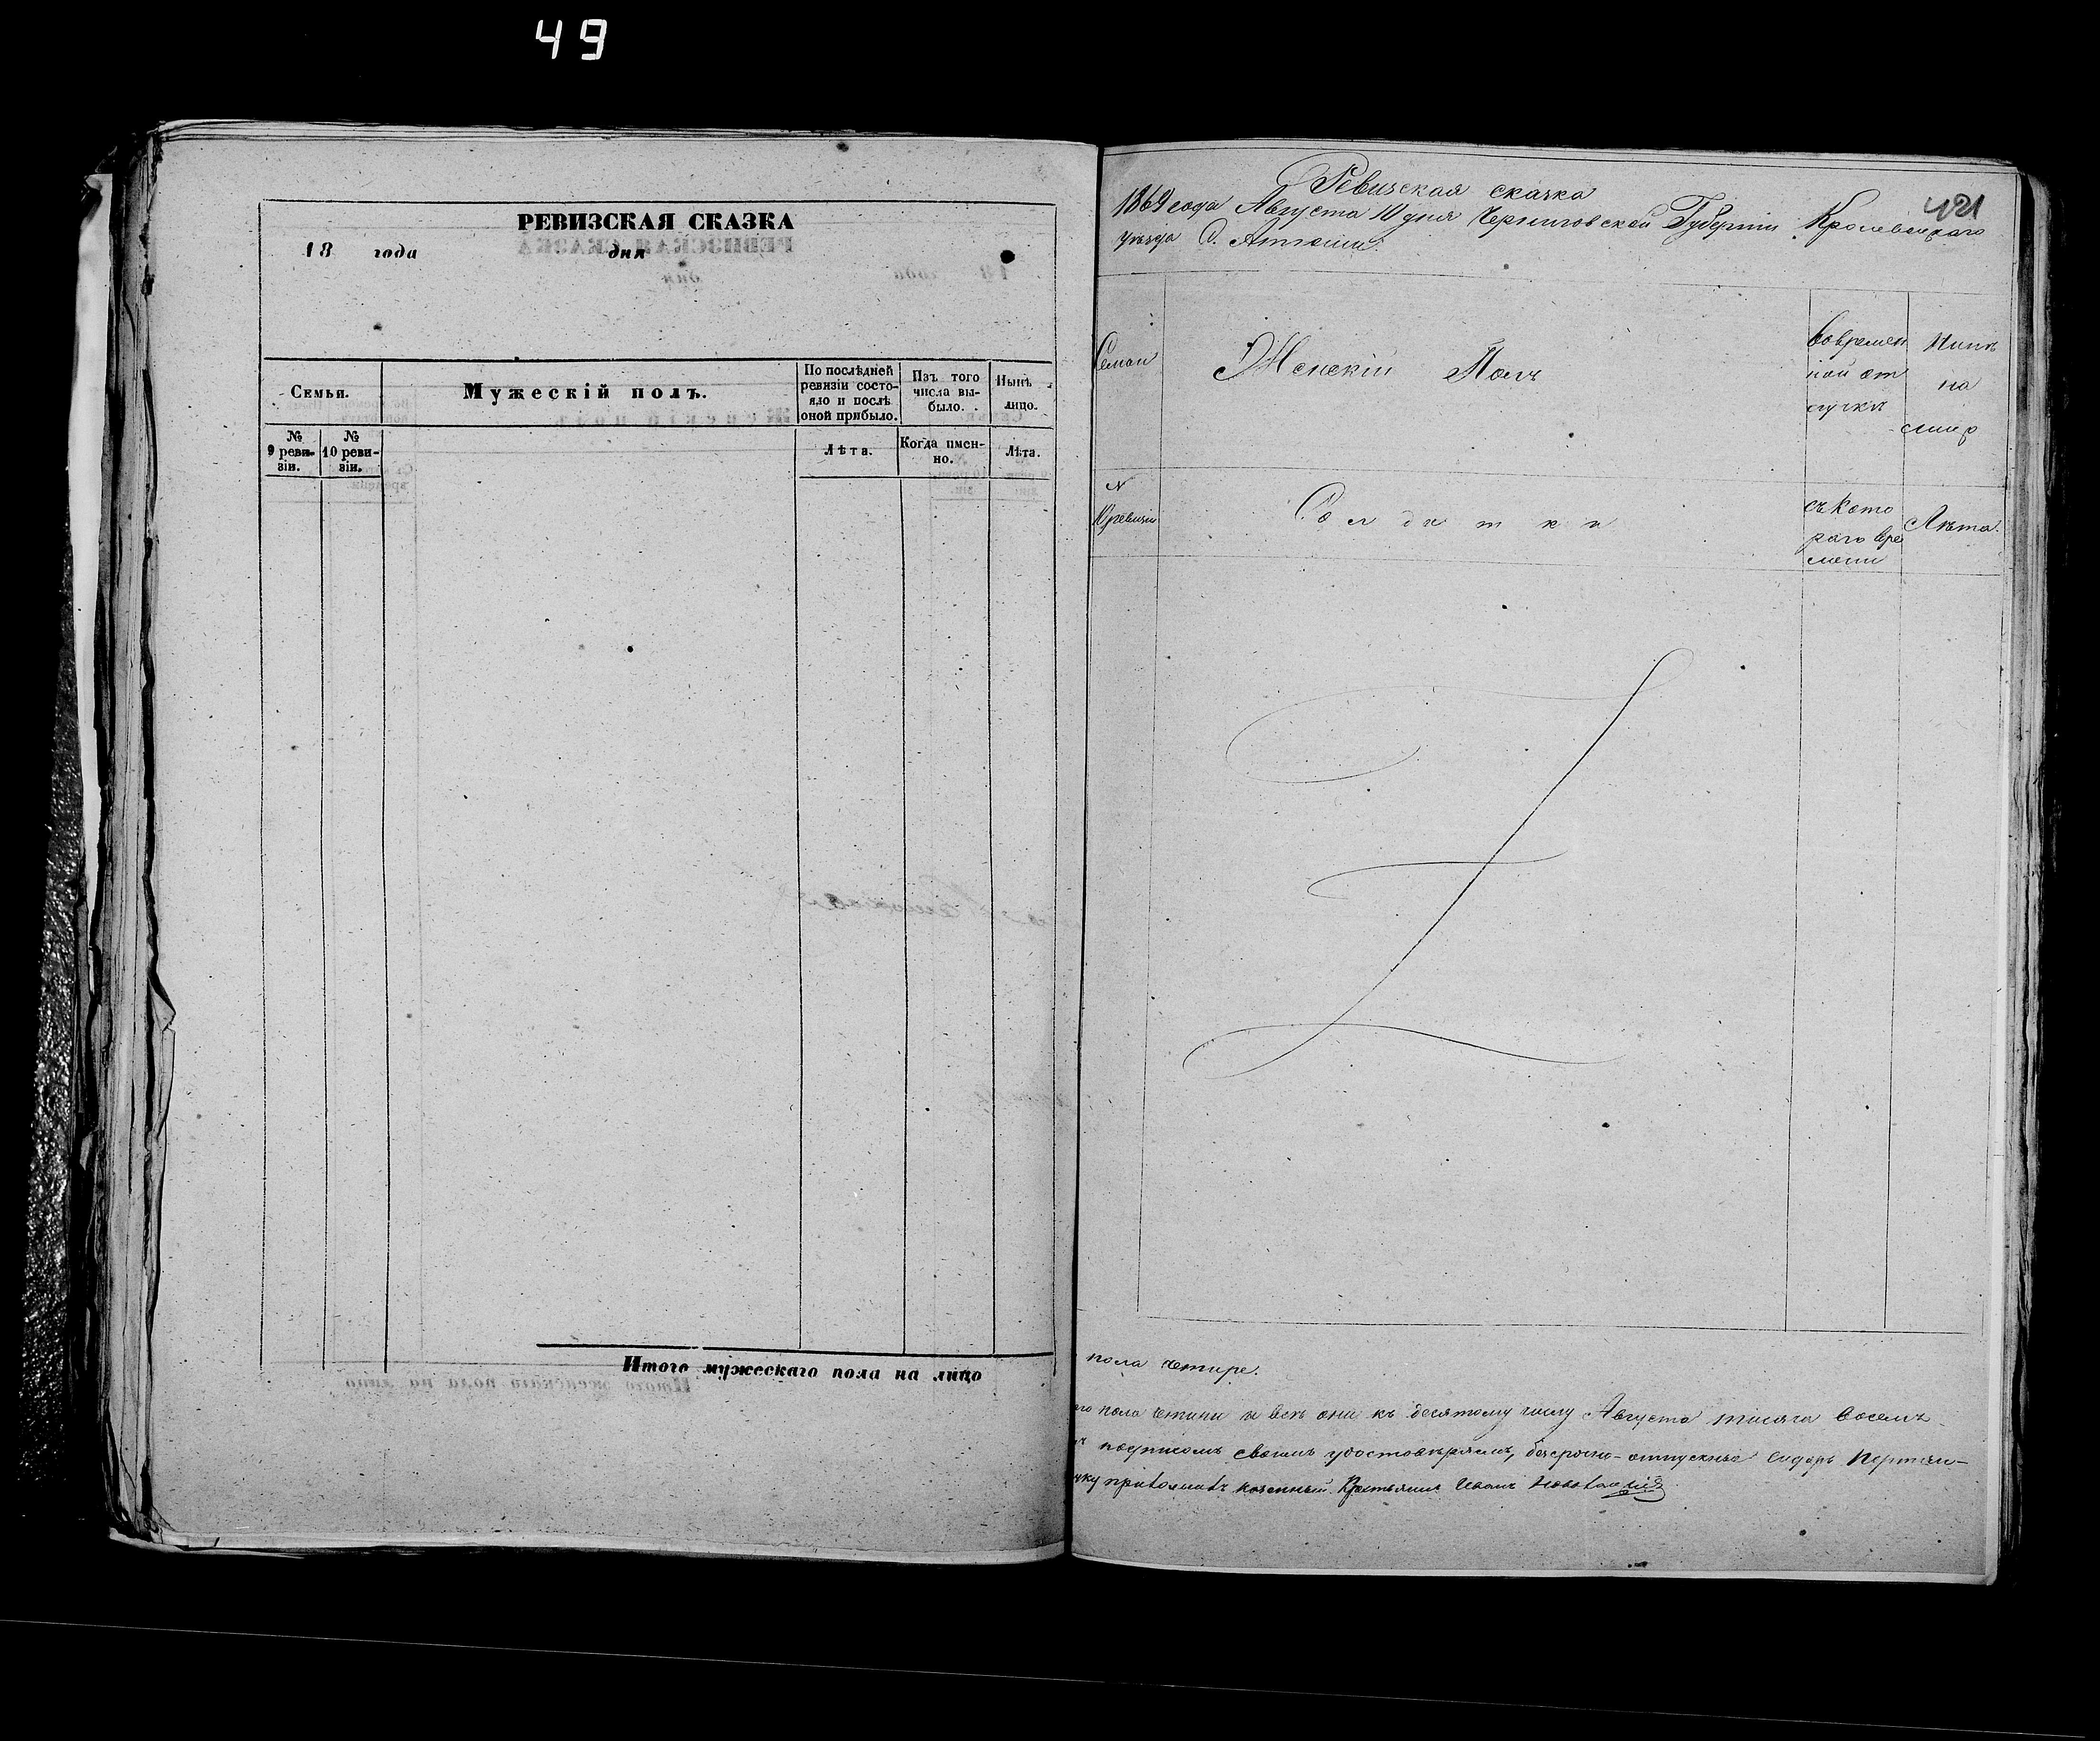 49
РЕВИЗСКАЯ СКАЗКА
18 года дня
Семьи.
Мужескій полъ.
По послѣдней
ревизіи состо-
яло и послѣ
оной прибыло.
Изъ того
числа вы-
было.
Нынѣ
лицо.
№
9 реви-
зіи.
№
10 реви-
зіи.
Лѣта.
Когда имен-
но.
Лѣта.
Итого мужескаго пола на лицо
421
Ревизская сказка
1869 года Августа 10 дня Черниговской Губерніи Кролевецкаго
уѣзда С. Атюши.
Семьи
Женскій Полъ
Вовремен
ной от
лучкѣ
Нынѣ
на
лицо
N
10 ревизіи
Солдатки
съ кото
раго вре
мени
Лѣта.
пола четыре.
пола и всѣ они къ десятому числу Августа тисяча восемъ
подписомъ своимъ удостовѣряемъ, безсрочно-отпускные Сидоръ
казенный Крестьянинъ Иванъ